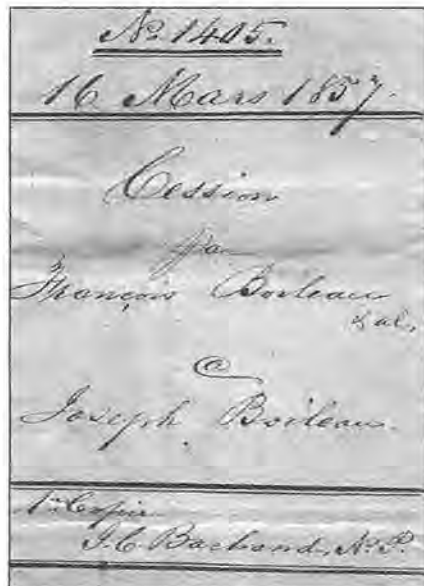 No. 1405.
16 Mars 1857.
Cession
par
François Boileau
& al.
à
Joseph Boileau.
1re Copie
J. C. Bachand, N. P.